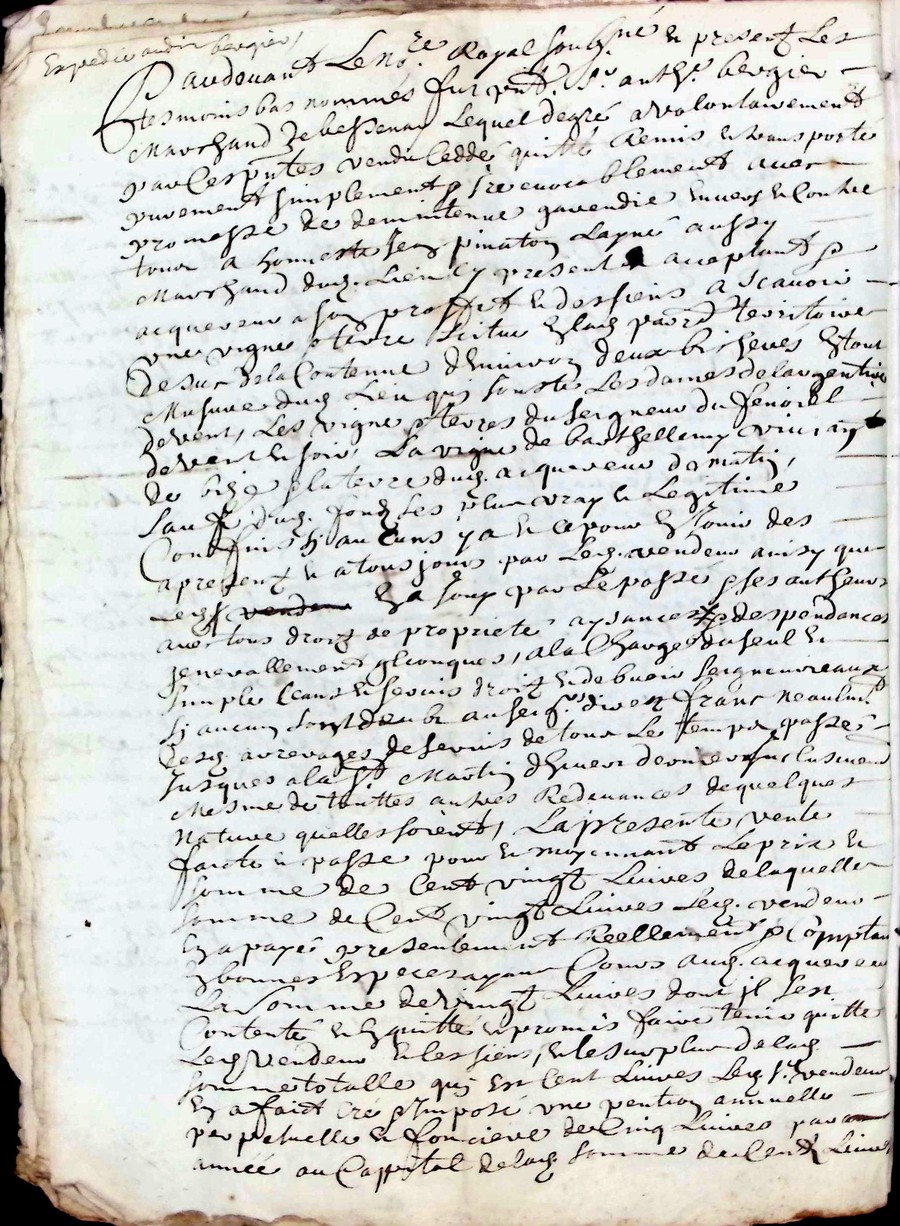 Expedie audit bergier,
Pardevant Le Nore. Royal soubsné & present Les
tesmoins bas nommes fut pnt. Sr. anthe. bergier
Marchand de bessenay Lequel de gré a volontairement
par Ces pntes vendu Ceddé quitté Remis & transporté
purement simplement & irrevocablement avec
promesse de demintenue garendie Envers & Contre
tous a honneste Jean pinaton Layné aussy
Marchand dud. Lieu Cy present & acceptant &
acquereur a son proffit & des siens a scavoir
une vigne & terre scitue En lad. paroe & territoire
de sur de la Contenue d'Environ deux bicherées Estant
Mesure dud. Lieu qui Jouste Les dames de largentiere
de vent, Les vigne & terres du seigneur du fenoiel
de vent & soir, La vigne de barthellemy vivian
de bize & la terre dud. acquereur de matin,
sauf dud. fonds ses plus vray & Legitime
Confins sy aucuns y a & ce pour En Jouir des
apresent & a tousjours par Led. vendeur ainsy que
Led. vendeur En a Jouy par Le passé & ses autheurs
avec tous droitz de proprieté aysances & despendances
generallement qlconques, a la Charge du seul &
simple Cens & servis droitz & debvoir seigneureaux
sy aucun sont deubz au seigr. direct franc neaulmt.
desd. arrerages de servis de tous Les temps passés
Jusques a la St. Martin d'hiver dernier inclusivement
Mesme de touttes autres Redevances de quelques
Nature quelles soient, La presente vente
faicte & passe pour & moyennant Le prix &
somme de Cent vingt Livres de laquelle
somme de Cent vingt Livres Led. vendeur
En a payé presentement Reellement & Comptant
En bonnes Especes ayant Cours aud. acquereur
La somme de vingt Livres dont il sest
Contenté & En quitte & promis faire tenir quitte
Led. Vendeur & les siens, & le surplus de lad.
somme totalle qui Est Cent Livres Led. Sr. Vendeur
En a faict Creé & Imposé une pention annuelle
perpetuelle & fonciere de Cinq Livres par an
année au Cappital de lad. somme de Cent Livres